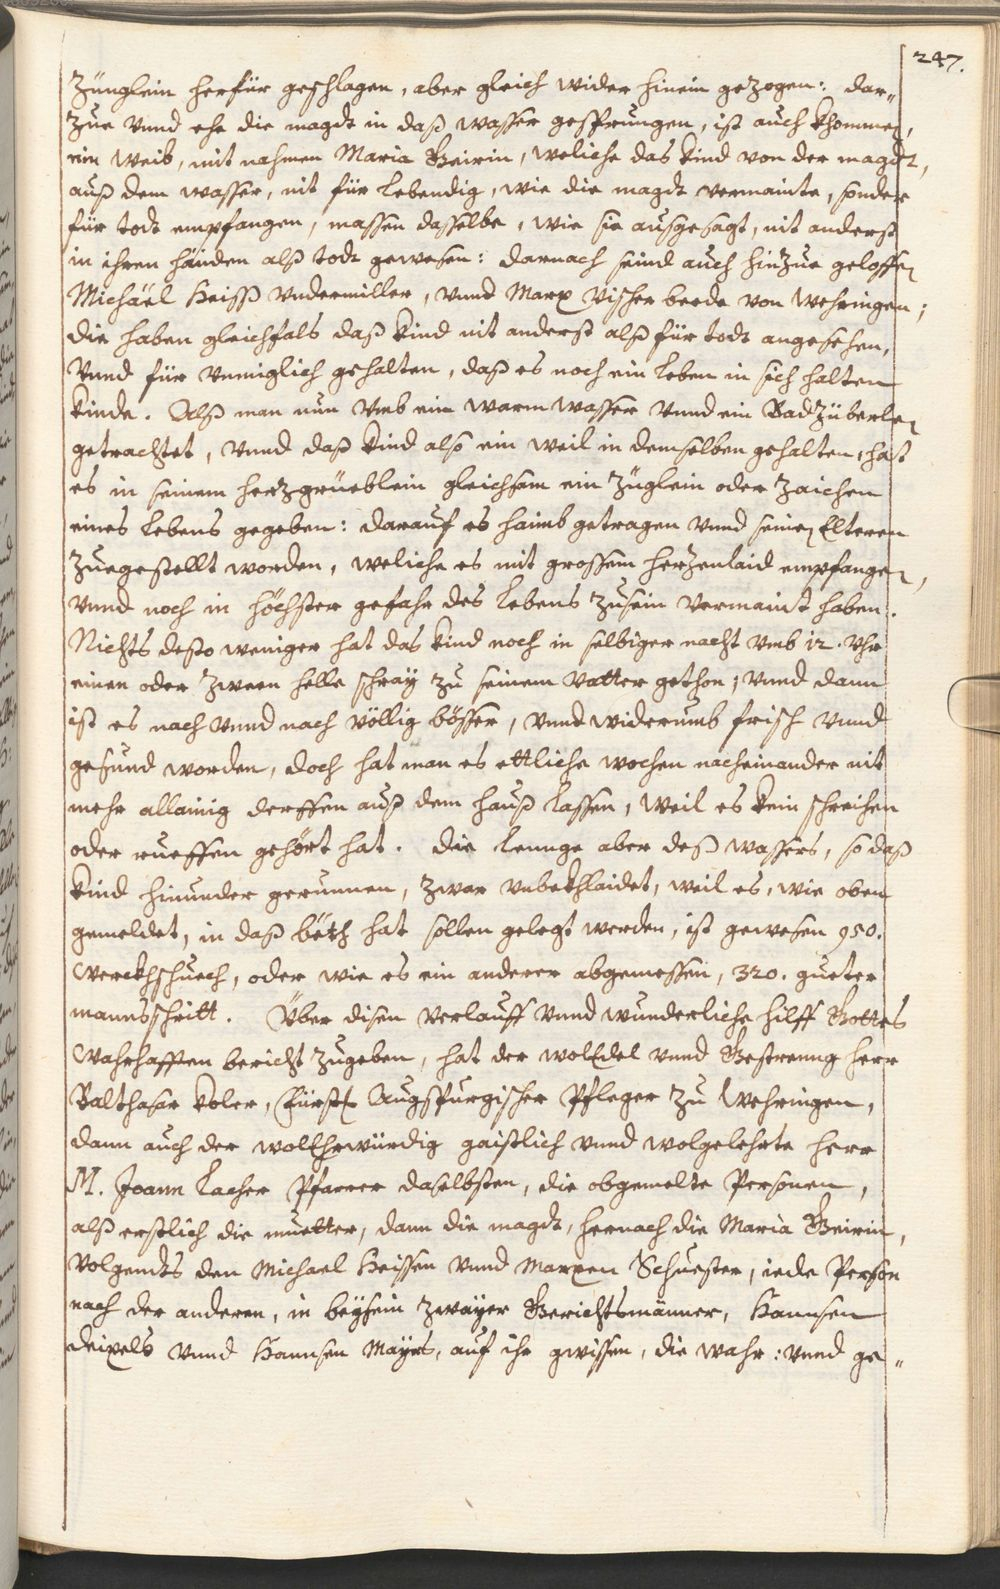 247.
Zünglein herfür geschlagen, aber gleich wider hinein gezogen: dar„
Zue vnnd ehe die magdt in daß wasser gesprungen, ist auch khommen,
ein weib, mit nahmen Maria Beirin, weliche das kind von der magdt,
auß dem wasser, nit für lebendig, wie die magdt vermainte, sonder
für todt empfangen, massen dasselbe, wie sie ausgesagt, nit anderst
in ihren händen alß todt gewesen: darnach seind auch hinzue geloffen
Michäel Heiss vndermiller, vnnd Marx Vischer beede von Wehringen;
die haben gleichfals daß kind nit anderst alß für todt angesehen,
vnnd für vnmiglich gehalten, daß es noch ein leben in sich halten
kinde. Alß man nun vmb ein warm wasser vnnd ein Badzüberlen
getrachtet, vnnd daß kind also ein weil in demselben gehalten, hat
es in seinem hertzgrüeblein gleichsam ein Züglein oder Zaichen
eines lebens gegeben: darauf es haimb getragen vnnd seinen Elteren
zuegestellt worden, weliche es mit grossem hertzenlaid empfangen,
vnnd noch in höchster gefahr des lebens zusein vermaint haben.
Nichts desto weniger hat das kind noch in selbiger nacht vmb 12. vhr
einen oder zween helle schray zu seinem vatter gethon; vnnd dann
ist es nach vnnd nach völlig bösser, vnnd widerumb frisch vnnd
gesund worden, doch hat man es ettliche wochen nacheinander nit
mehr allainig derffen auß dem hauß lassen, weil es kein schreihen
oder rueffen gehört hat. Die lennge aber deß wassers, so daß
kind hinunder gerunnen, zwar vnbekhlaidet, weil es, wie oben
gemeldet, in daß beth hat sollen gelegt werden, ist gewesen 950.
Werckhschuech, oder wie es ein anderer abgemessen, 320. gueter
mannsschritt. Über disen verlauff vnnd wunderliche hilff Gottes
wahrhafften bericht zugeben, hat der wolEdel vnnd Gestrenng herr
Balthasar Koler, Fürstl. Augspurgischer Pfleger zu Wehringen,
dann auch der wollEhrwürdig gaistlich vnnd wolgelehrte herr
M. Joann Lacher Pfarrer daselbsten, die obgemelte Personen,
alß erstlich die muetter, dann die magdt, hernach die Maria Beirin,
volgendts den Michael Heissen vnnd Marxen Schuester, iede Person
nach der anderen, in beysein zwayer Gerichtsmänner, Hannsen
deixels vnnd Hannsen Mayrs, auf ihr gwissen, die wahr: vnnd ge„